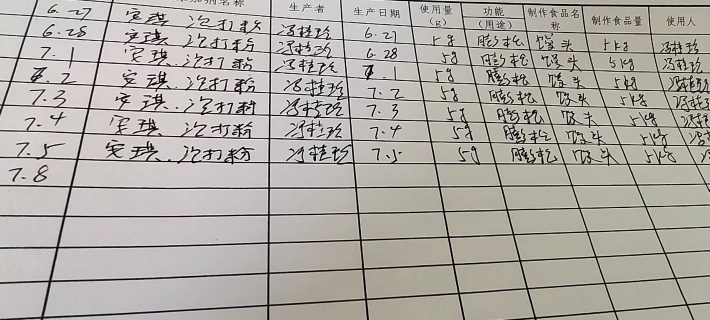 加剂名称 生产者 生产日期 使用量(g) 功能(用途) 制作食品名称 制作食品量 使用人
6.27 安琪 泡打粉 冯桂珍 6.27 5g 膨松 馒头 5kg 冯桂珍
6.28 安琪.泡打粉 冯桂珍 6.28 5g 膨松 馒头 5kg 冯桂珍
7.1 安琪.泡打粉 冯桂珍 7.1 5g 膨松 馒头 5kg 冯桂珍
7.2 安琪.泡打粉 冯桂珍 7.2 5g 膨松 馒头 5kg 冯桂
7.3 安琪.泡打粉 冯桂珍 7.3 5g 膨松 馒头 5kg 冯桂
7.4 安琪.泡打粉 冯桂珍 7.4 5g 膨松 馒头 5kg 冯
7.5 安琪.泡打粉 冯桂珍 7.5 5g 膨松 馒头 5kg
7.8